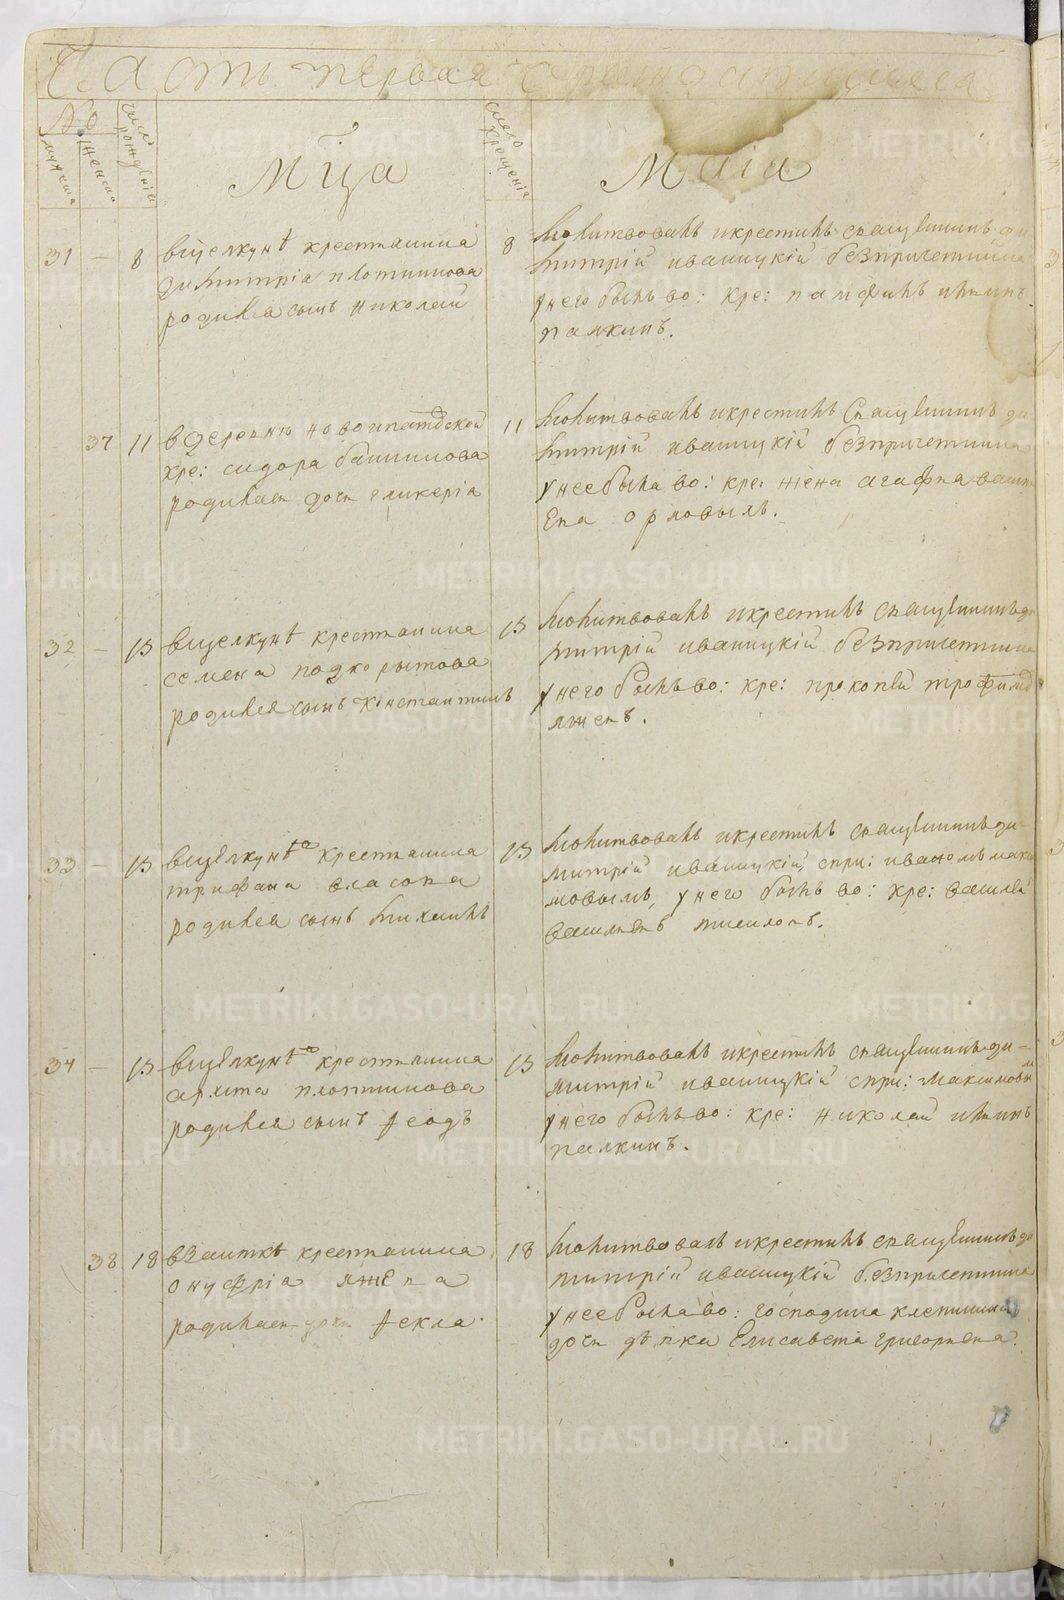 Часть первая о раждающихся
№
мужеска
женска
число рождения
число крещения
Мца
Маіа
31 — 8 вщелкунѣ крестьянина
димитріа плотникова
родился сынъ николай
8 молитвовалъ икрестилъ священникъ ди
митрій иваницкій безпричетника
унего былъ во: кре: памфилъ
палкинъ.
37 11 вдеревню новоипатовской
кре: сидора банникова
родилась дочь гликеріа
11 молитвовалъ икрестилъ священникъ ди
митрій иваницкій безпричетника
унее была во: кре: жена агафіа васил
ева орловыхъ.
32 — 15 вщелкунѣ крестьянина
семена подкорытова
родился сынъ константинъ
15 молитвовалъ икрестилъ священникъ ди
митрій иваницкій безпричетника
унего былъ во: кре: прокопей трофимо
лжевъ.
33 — 15 вщелкунѣ крестьянина
трифана власова
родился сынъ михаилъ
15 молитвовалъ икрестилъ священникъ ди
митрій иваницкій спри: иваномъ макси
мовымъ, унего былъ во: кре: василей
васильевъ
34 — 15 вщелкунѣ крестьянина
плотникова
родился сынъ ѳеодъ
15 молитвовалъ икрестилъ священникъ ди—
митрій иваницкій спри: максимовым
унего былъ во: кре: николай
палкинъ.
38 18 взаимкѣ крестьянина
онуфріа лжева
родилась дочь ѳекла.
18 молитвовалъ икрестилъ священникъ ди
митрій иваницкій безпричетника
унее была во: господина клепинина
дочь дѣвка Елисавета григорьева.
METRIKI.GASO-URAL.RU